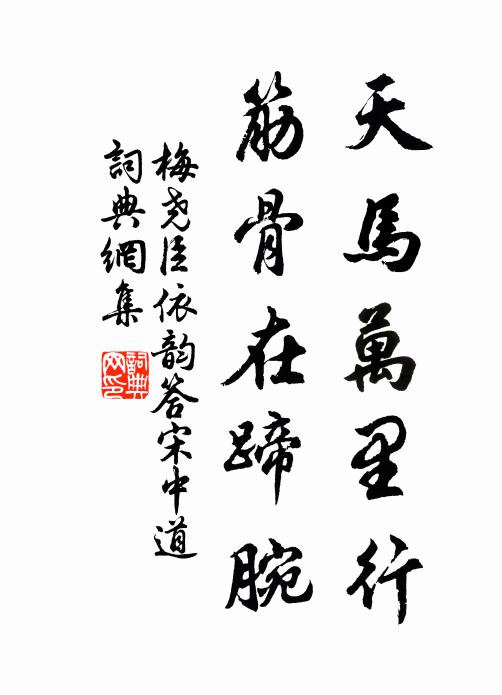 天馬萬里行
筋骨在蹄腕
梅尧臣依韵答宋中道
詞典網集
詞典网印